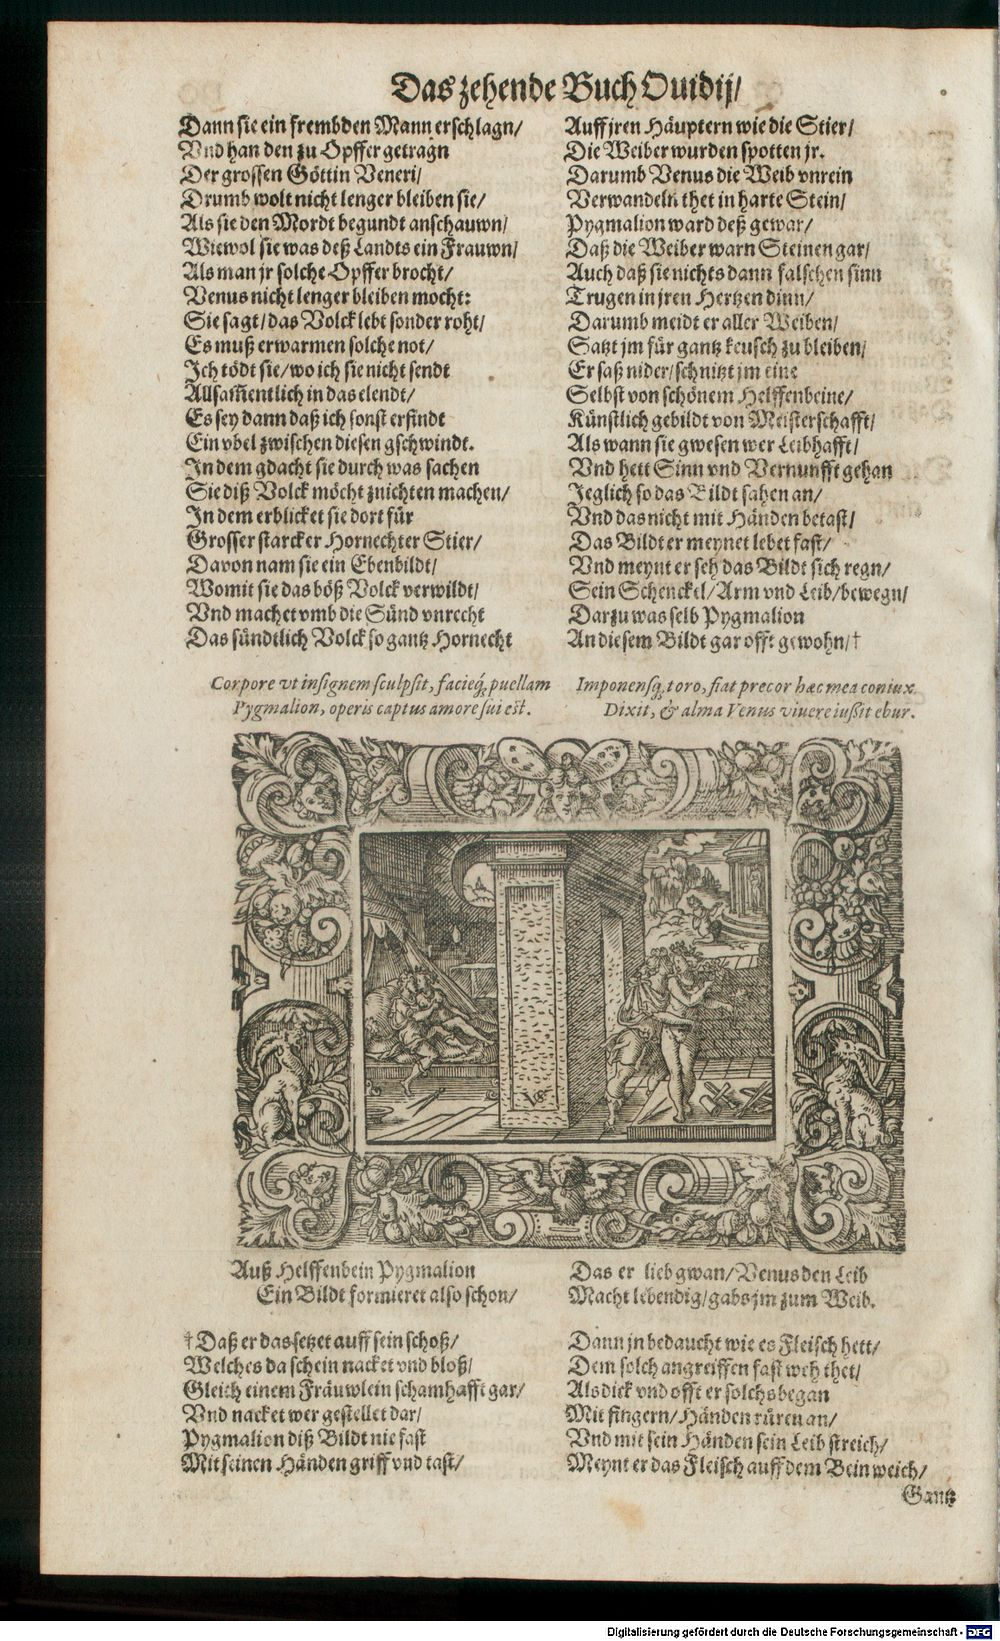 Das zehende Buch Ouidij/
Dann sie ein frembden Mann erschlagn/
Vnd han den zu Opffer getragn
Der grossen Göttin Veneri/
Drumb wolt nicht lenger bleiben sie/
Als sie den Mordt begundt anschauwn/
Wiewol sie was deß Landts ein Frauwn/
Als man jr solche Opffer brocht/
Venus nicht lenger bleiben mocht:
Sie sagt/das Volck lebt sonder roht/
Es muß erwarmen solche not/
Ich tödt sie/wo ich sie nicht sendt
Allsam̃entlich in das elendt/
Es sey dann daß ich sonst erfindt
Ein vbel zwischen diesen gschwindt.
In dem gdacht sie durch was sachen
Sie diß Volck möcht znichten machen/
In dem erblicket sie dort für
Grosser starcker Hornechter Stier/
Davon nam sie ein Ebenbildt/
Womit sie das böß Volck verwildt/
Vnd machet vmb die Sünd vnrecht
Das sündtlich Volck so gantz Hornecht
Auff jren Häuptern wie die Stier/
Die Weiber wurden spotten jr.
Darumb Venus die Weib vnrein
Verwandeln thet in harte Stein/
Pygmalion ward deß gewar/
Daß die Weiber warn Steinen gar/
Auch daß sie nichts dann falschen sinn
Trugen in jren Hertzen dinn/
Darumb meidt er aller Weiben/
Satzt jm für gantz keusch zu bleiben/
Er saß nider/schnitzt jm eine
Selbst von schönem Helffenbeine/
Künstlich gebildt von Meisterschafft/
Als wann sie gwesen wer Leibhafft/
Vnd hett Sinn vnd Vernunfft gehan
Jeglich so das Bildt sahen an/
Vnd das nicht mit Händen betast/
Das Bildt er meynet lebet fast/
Vnd meynt er seh das Bildt sich regn/
Sein Schenckel/Arm vnd Leib/bewegn/
Darzu was selb Pygmalion
An diesem Bildt gar offt gewohn/†
Corpore vt insignem sculpsit, facieq́; puellam
Pygmalion, operis captus amore sui est.
Imponensq́; toro, fiat precor hæc mea coniux
Dixit, & alma Venus viuere iußit ebur.
VS
Auß Helffenbein Pygmalion
Ein Bildt formieret also schon/
Das er lieb gwan/Venus den Leib
Macht lebendig/gabs jm zum Weib.
† Daß er das setzet auff sein schoß/
Welches da schein nacket vnd bloß/
Gleich einem Fräuwlein schamhafft gar/
Vnd nacket wer gestellet dar/
Pygmalion diß Bildt nie fast
Mit seinen Händen griff vnd tast/
Dann jn bedaucht wie es Fleisch hett/
Dem solch angreiffen fast weh thet/
Als dick vnd offt er solchs began
Mit fingern/Händen rüren an/
Vnd mit sein Händen sein Leib streich/
Meynt er das Fleisch auff dem Bein weich/
Gantz
Digitalisierung gefördert durch die Deutsche Forschungsgemeinschaft - DFG